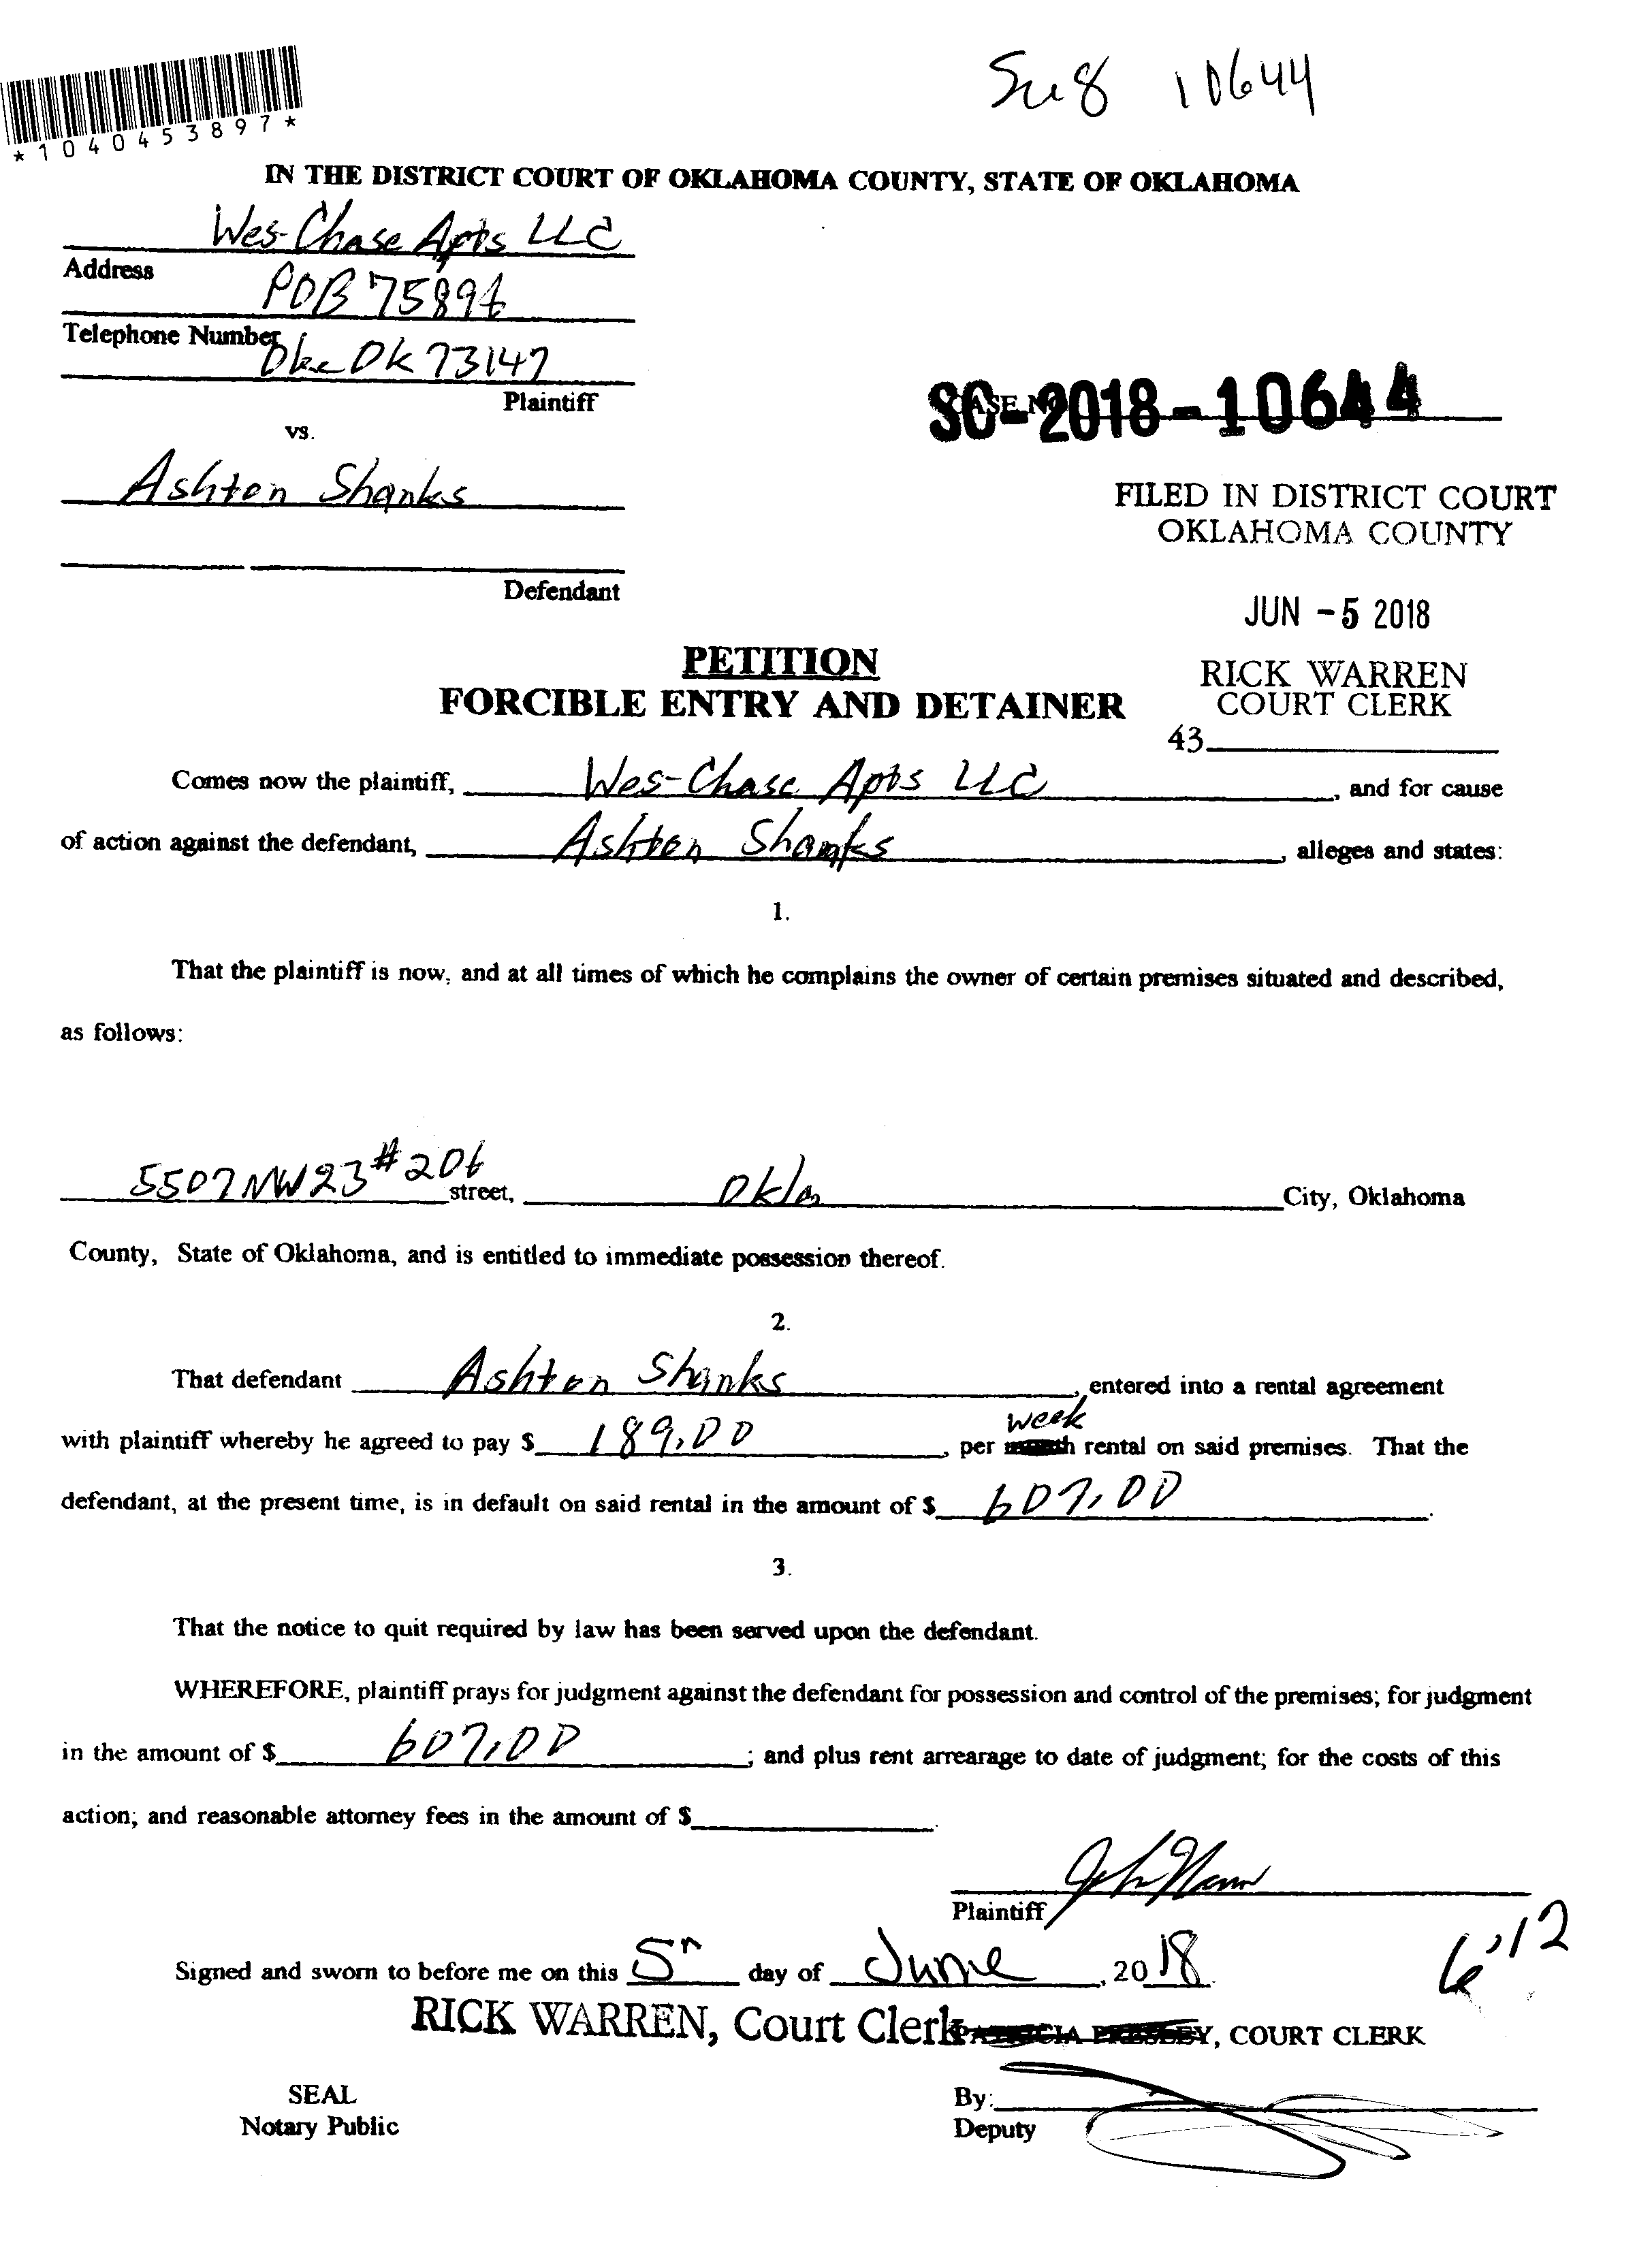 *1040453897*
10644
IN THE DISTRICT COURT OF OKLAHOMA COUNTY, STATE OF OKLAHOMA
Wes-Chase Apts LLC
Address
POB 75894
Telephone Number
Okc Ok 73147
Plaintiff
vs.
SC-2018-10644
Ashton Shanks
FILED IN DISTRICT COURT
OKLAHOMA COUNTY
Defendant
JUN -5 2018
PETITION
FORCIBLE ENTRY AND DETAINER
RICK WARREN
COURT CLERK
43
Comes now the plaintiff, Wes-Chase Apts LLC, and for cause
of action against the defendant, Ashton Shanks, alleges and states:
1.
That the plaintiff is now, and at all times of which he complains the owner of certain premises situated and described,
as follows:
5507 NW 23 #206 street, Okla City, Oklahoma
County, State of Oklahoma, and is entitled to immediate possession thereof.
2.
That defendant Ashton Shanks, entered into a rental agreement
with plaintiff whereby he agreed to pay $ 189.00, per month week rental on said premises. That the
defendant, at the present time, is in default on said rental in the amount of $ 607.00.
3.
That the notice to quit required by law has been served upon the defendant.
WHEREFORE, plaintiff prays for judgment against the defendant for possession and control of the premises; for judgment
in the amount of $ 607.00; and plus rent arrearage to date of judgment; for the costs of this
action; and reasonable attorney fees in the amount of $.
Plaintiff
Signed and sworn to before me on this 5th day of June, 2018.
6-12
RICK WARREN, Court Clerk PATRICIA PRESLEY, COURT CLERK
SEAL
Notary Public
By:
Deputy